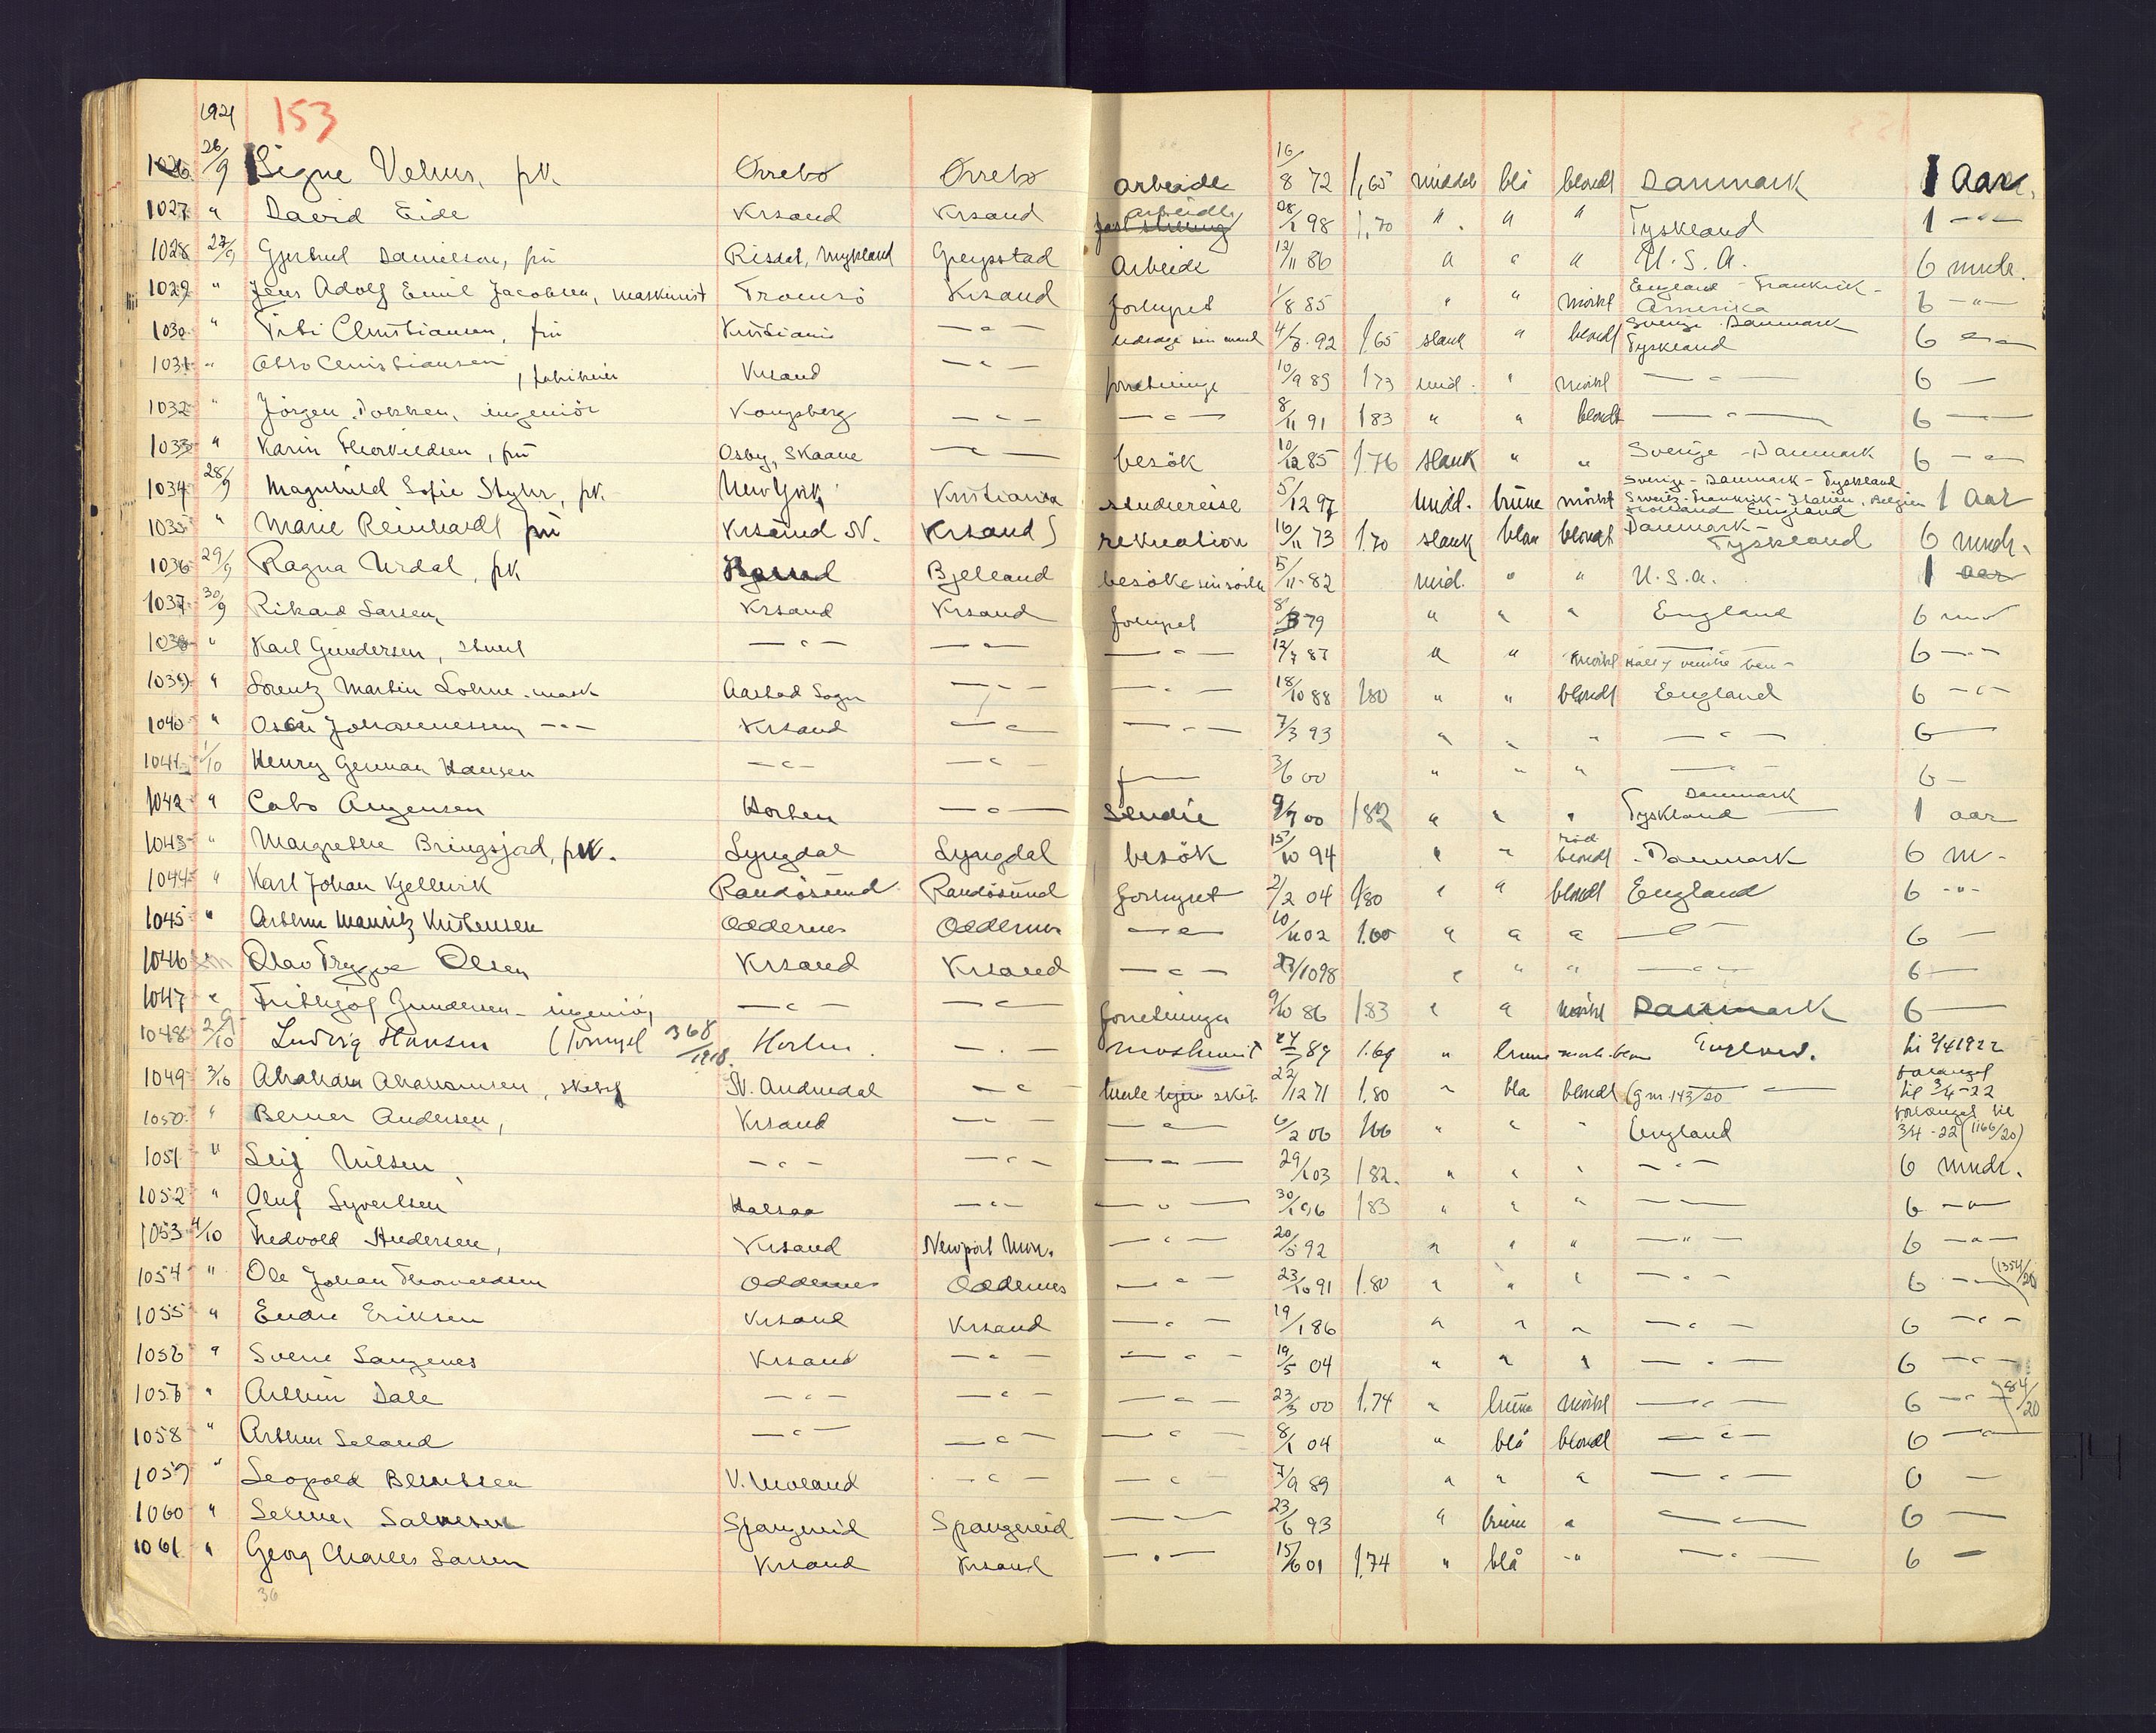 1921 153
1026 26/9 Signe Vehus, pk. Orrebo Orrebo arbeide 16/8 72 1,65 middel blå blondt Danmark 1 Aar.
1027 " David Eide Krsand Krsand arbeide 28/1 98 1,70 " " " Tyskland 1 -"-
1028 27/9 Gjertrud Danielsen, frü Risdal, Mykland Greipstad Arbeide 12/11 86 " " " U.S.A. 6 mndr.
1029 " Jens Adolf Emil Jacobsen, maskinist Tromsö Krsand forhyret 1/8 85 " " mörkt England - Frankrik - Amerika 6 -"-
1030 " Christiansen, frü Kristiania -"- ledsage sin mand 4/8 92 1,65 slank " blondt Sverige Danmark Tyskland 6 -"-
1031 " Otto Christiansen, Krsand -"- forretninge 10/9 89 173 mid. " mörkt -"- 6 -
1032 " Jörgen Dokken, ingeniör Kongsberg -"- -"- 8/11 91 183 " " blondt -"- 6 -
1033 " Karin Thorkildsen, frü Osby, Skaane -"- besök 10/12 85 1.76 slank " " Sverige - Danmark 6 -"-
1034 28/9 Magnhild Sofie Styhr, pk. New York Kristiania studiereise 5/12 97 midd. brüne mörkt Sverige - Danmark - Tyskland Sweitz - Frankrik - Italien, Belgien Holland England 1 aar
1035 " Marie Reinhardt frü Krsand N. Krsand S rekreation 16/11 73 1.70 slank blaa blondt Danmark - Tyskland 6 mndr.
1036 29/9 Ragna Urdal, pk Bjelland besöke sin 5/11-82 mid. " " U.S.A. 1 aar
1037 30/9 Rikard Larsen Krsand Krsand forhyret 79 " " " England 6
1038 " Karl Gundersen, -"- -"- -"- 12/7 87 " " mörkt 6 -"-
1039 " Lorentz Martin Lohne - mask Aasted Sogn -"- -"- 18/10 88 180 " " blondt England 6 -"-
1040 " Johannessen -"- Krsand -"- -"- 7/3 93 " " " -"- 6 -
1041 1/10 Henry German Hansen -"- -"- 3/6 00 " " " -"- 6 -
1042 " Horten -"- 9/9 00 182 " " " Danmark Tyskland 1 aar
1043 " Margrethe Bringsjord, pk. Lyngdal Lyngdal besök 15/10 94 " " röd blondt Danmark 6 m-
1044 " Karl Johan Kjellevik Randösund Randösund forhyret 2/2 04 180 " " blondt England 6 -"-
1045 " Arthur Mauritz Kristensen Oddernes Oddernes -"- 10/11 02 1.60 " " " -"- 6 -
1046 Olav Trygve Olsen Krsand Krsand -"- 27/10 98 " " " -"- 6 -
1047 " Frithjof Gundersen - ingeniör -"- -"- forretninger 9/10 86 1.83 " " mörkt Danmark 6 -
1048 Ludvig Hansen 368/1918. Horten. -"- 1.69 " brune England. til 2/4 1922
1049 3/10 Abrahamsen, -"- 22/12 71 1.80 " blå blondt (gm. 143/20 forlænget til 3/4-22
1050 " Berner Andersen, Krsand -"- -"- 6/2 06 166 " " " England forlænget til 3/4-22 (1166/20)
1051 " Leif Nilsen -"- -"- -"- 29/1 03 182. " " " -"- 6 mndr.
1052 " Oluf Syvertsen Halsaa -"- -"- 30/1 96 183 " " " -"- 6 -"-
1053 4/10 Fredvold Andersen, Krsand Newport Mon. -"- 20/5 92 " " " -"- 6 -"-
1054 " Ole Johan Thorvaldsen Oddernes Oddernes -"- 23/10 91 1.80 " " " -"- 6 -"- (1354/20
1055 " Endre Eriksen Krsand Krsand -"- 19/1 86 " " " -"- 6 -"-
1056 " Sverre Langenes Krsand -"- -"- 19/5 04 " " " -"- 6 -"-
1057 " Arthur Dale -"- -"- -"- 23/3 00 1.74 " brüne mörkt -"- 6 -"- 84/20
1058 " Arthur Seland -"- -"- -"- 8/1 04 " blå blondt -"- 6 -"-
1059 " Leopold Berntsen V. Moland -"- -"- 7/9 89 " " " -"- 6 -
1060 " Selmer Salvesen Spangereid Spangereid -"- 23/6 93 " brüne " -"- 6 -
1061 " Georg Charles Larsen Krsand Krsand -"- 15/6 01 1.74 " blå -"- -"- 6 -
36